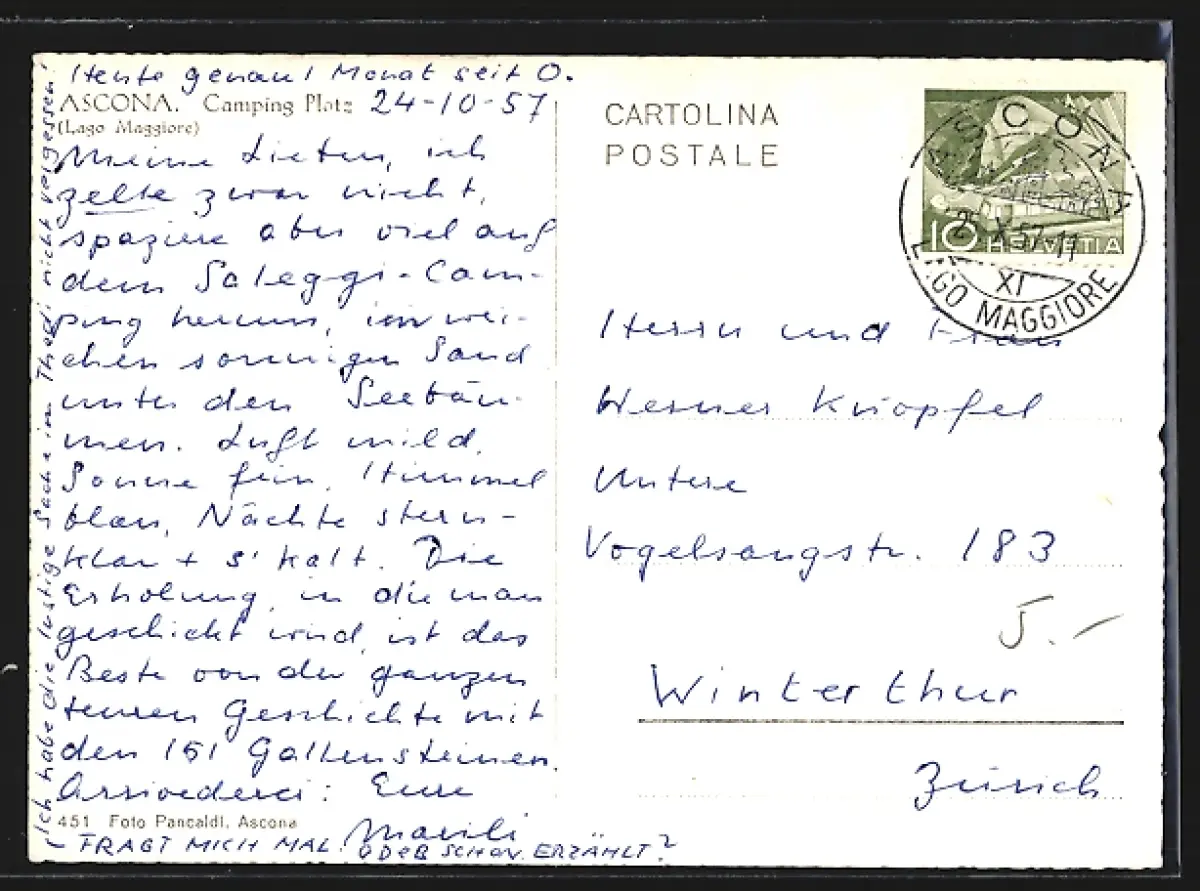 Heute genau 1 Monat seit O.
ASCONA. Camping Platz 24-10-57
(Lago Maggiore)
Meine Lieben, ich
zelte zwar nicht,
spaziere aber viel auf
dem Saleggi-Cam-
ping herum, im wei-
chen sonnigen Sand
unter den Seebäu-
men. Luft mild,
Sonne fein, Himmel
blau, Nächte stern-
klar + s' kalt. Die
Erholung, in die man
geschickt wird, ist das
Beste von der ganzen
teuren Geschichte mit
den 151 Gallensteinen.
Arrivederci: Eure
Marili
451 Foto Pancaldi, Ascona
- FRAGT MICH MAL! ODER SCHON ERZÄHLT?
Ich habe die lustige Sache im Thedi nicht vergessen!
CARTOLINA
POSTALE
10 HELVETIA
ASCONA
25. X. 57-11
XI
LAGO MAGGIORE
Herrn und Frau
Werner Knopfel
Untere
Vogelsangstr. 183
5.-
Winterthur
Zürich